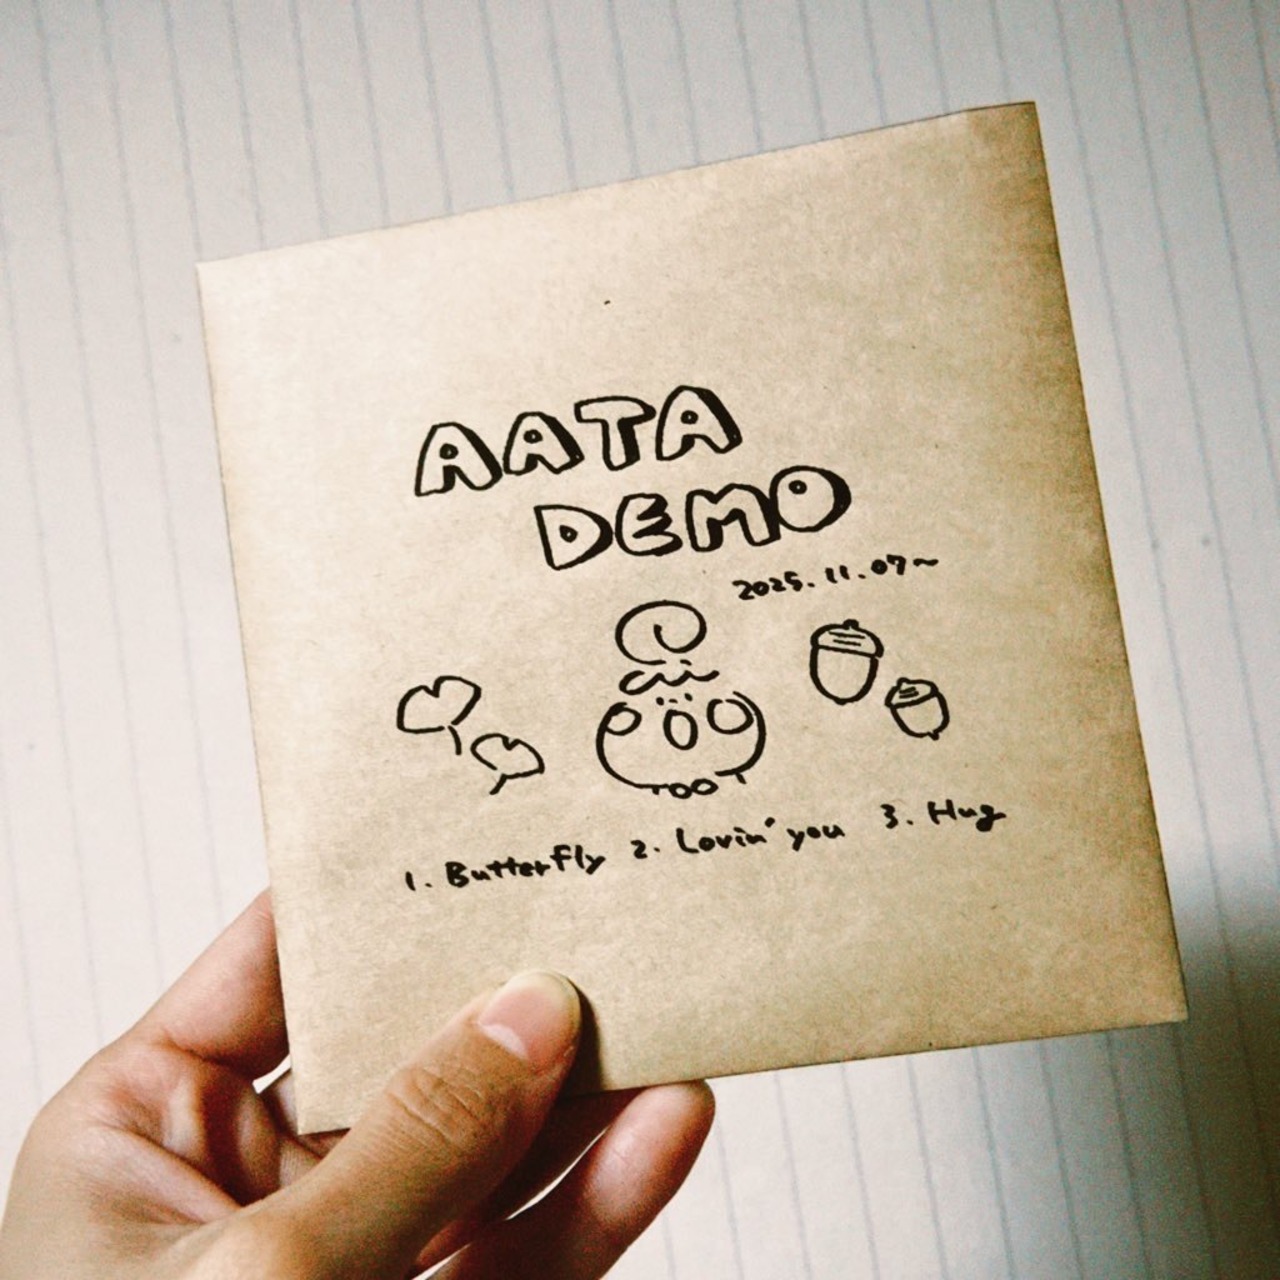 AATA
DEMO
2025.11.07~
1. Butterfly 2. Lovin' you 3. Hug